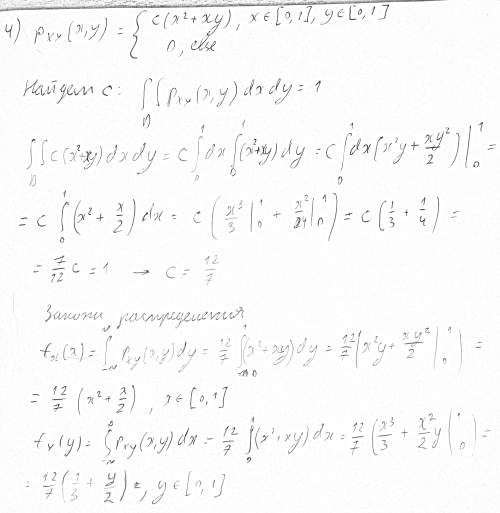 4) p_{x,y}(x,y) = { c(x²+xy), x∈[0,1], y∈[0,1]
0, else
Найдем c: ∫∫_D p_{x,y}(x,y) dxdy = 1
∫∫_D c(x²+xy)dxdy = c∫₀¹dx∫₀¹(x²+xy)dy = c∫₀¹dx(x²y + xy²/2)|₀¹ =
= c ∫₀¹(x² + x/2)dx = c(x³/3|₀¹ + x²/4|₀¹) = c(1/3 + 1/4) =
= 7/12 c = 1 → c = 12/7
Законы распределения
f_x(x) = ∫_{-∞}^{∞} p_{x,y}(x,y)dy = 12/7 ∫₀¹(x²+xy)dy = 12/7(x²y + xy²/2|₀¹) =
= 12/7 (x² + x/2), x∈[0,1]
f_y(y) = ∫_{-∞}^{∞} p_{x,y}(x,y)dx = 12/7 ∫₀¹(x²+xy)dx = 12/7(x³/3 + x²/2 y|₀¹) =
= 12/7(1/3 + y/2), y∈[0,1]